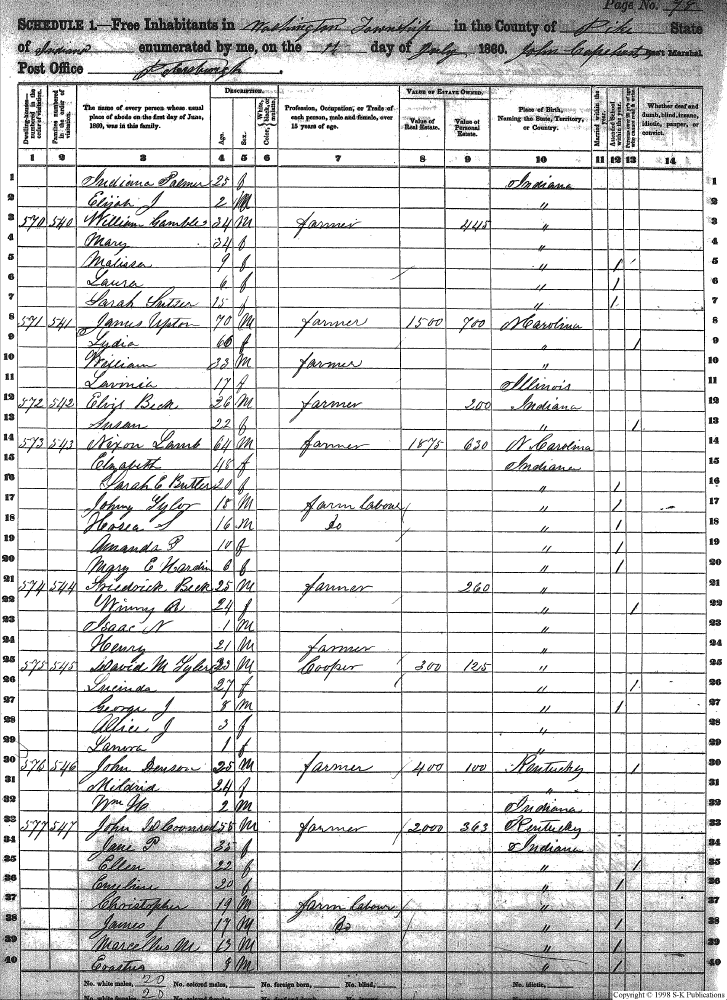 Page No. 78
SCHEDULE 1.—Free Inhabitants in Washington Township in the County of Pike State
of Indiana enumerated by me, on the day of July 1860. John Ass't Marshal.
Post Office Petersburgh.
Dwelling-houses— numbered in the order of visitation.
Families numbered in the order of visitation.
The name of every person whose usual place of abode on the first day of June, 1860, was in this family.
DESCRIPTION.
Age.
Sex.
Color, White, black, or mulatto.
Profession, Occupation, or Trade of each person, male and female, over 15 years of age.
VALUE OF ESTATE OWNED.
Value of Real Estate.
Value of Personal Estate.
Place of Birth, Naming the State, Territory, or Country.
Married within the year.
Attended School within the year.
Persons over 20 y'rs of age who cannot read & write.
Whether deaf and dumb, blind, insane, idiotic, pauper, or convict.
1 2 3 4 5 6 7 8 9 10 11 12 13 14
1 Indiana Palmer 25 f Indiana 1
2 Elijah J 2 M " 2
3 570 540 William Gamble 34 M farmer 445 " 3
4 Mary 34 f " 4
5 Malissa 9 f " / 5
6 Laura 6 f " / 6
7 Sarah 15 f " / 7
8 571 541 James Upton 70 M farmer 1500 700 N Carolina 8
9 Lydia 60 f " / 9
10 William 33 M farmer " 10
11 Lavonia 17 f Illinois 11
12 572 542 Beck 26 M farmer 200 Indiana 12
13 Susan 22 f " / 13
14 573 543 Nixon Lamb 64 M farmer 1875 630 N Carolina 14
15 Elizabeth 48 f Indiana 15
16 Sarah E Butler 20 f " / 16
17 Johny Tylor 18 M farm labour " / 17
18 Hosea S 16 M Do " / 18
19 Amanda P 10 f " / 19
20 Mary E Hardin 6 f " / 20
21 574 544 Friedrick Beck 25 M farmer 260 " 21
22 Winny A 24 f " / 22
23 Isaac N 1 M " 23
24 Henry 21 M farmer " 24
25 575 545 David M Tyler 33 M Cooper 300 125 " 25
26 Lucinda 27 f " / 26
27 George J 8 M " / 27
28 Allice J 3 f " 28
29 Lanora 1 f " 29
30 576 546 John Denson 25 M farmer 400 100 Kentucky / 30
31 Mildrid 24 f " 31
32 Wm H 2 M Indiana 32
33 577 547 John D Coonrod 55 M farmer 2000 363 Kentucky 33
34 Jane P 35 f Indiana 34
35 Ellen 22 f " / 35
36 Emyline 20 f " / 36
37 Christopher 19 M farm labour " 37
38 James J 17 M Do " / 38
39 Marcellus M 13 M " / 39
40 Erastus 8 M " / 40
No. white males, 20 No. colored males, No. foreign born, No. blind, No. idiotic,
No. white females, 20
Copyright © 1998 S-K Publications